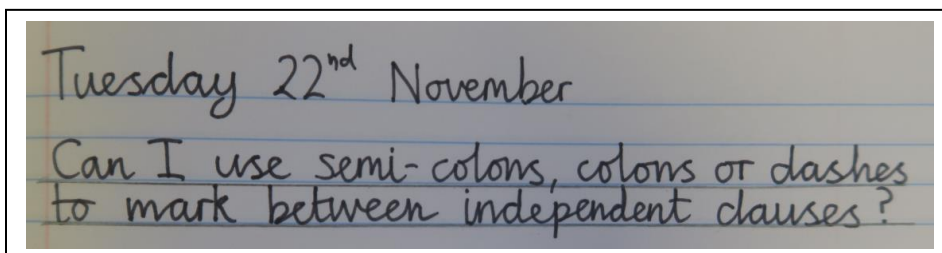 Tuesday 22nd November
Can I use semi-colons, colons or dashes
to mark between independent clauses?